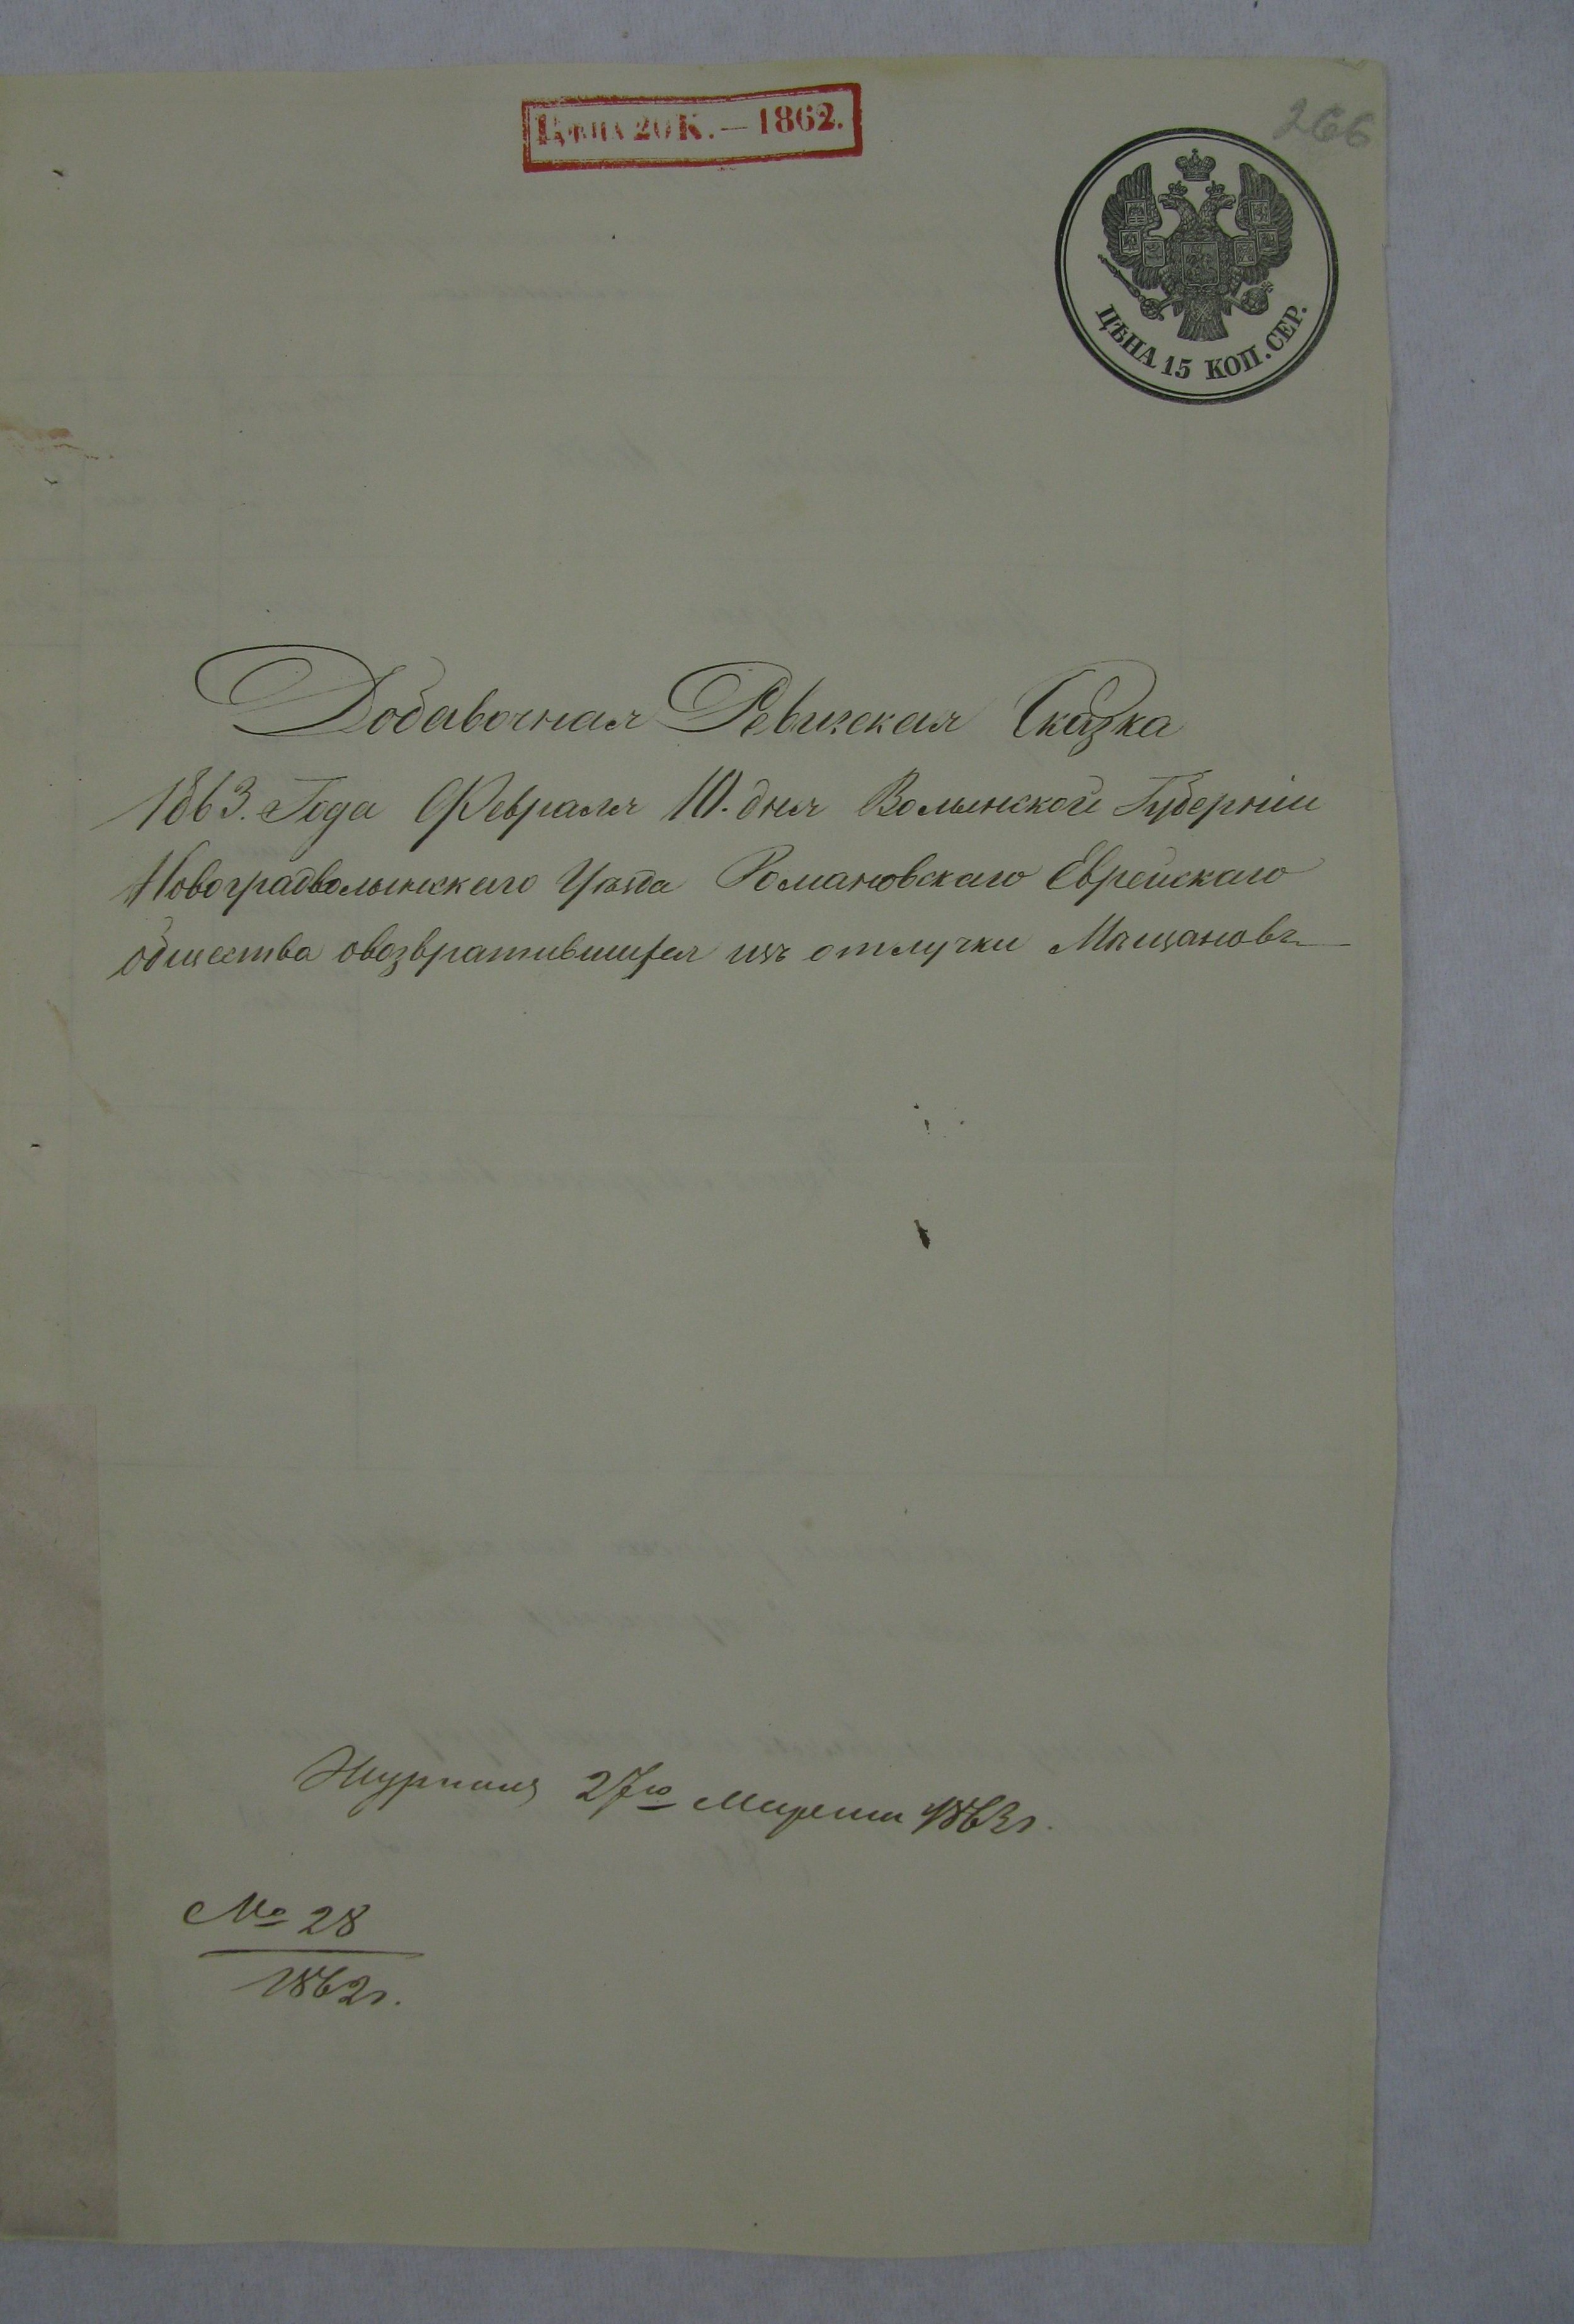 Цѣна 20 К. — 1862.
266
ЦѢНА 15 КОП. СЕР.
Добавочная Ревизская Сказка
1863. Года Февраля 10. дня Волынской Губерніи
Новоградволынскаго Уѣзда Романовскаго Еврейскаго
общества овозвратившихся изъ отлучки Мѣщановъ
27го Марта 1863 г.
№ 28
1862 г.